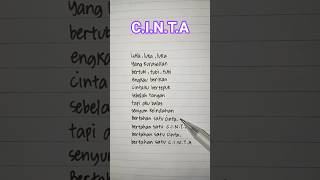 C.I.N.T.A
luka, luka, luka
yang kurasakan
bertubi, tubi, tubi
engkau berikan
cintaku bertepuk
sebelah tangan
tapi aku balas
senyum keindahan
bertahan satu cinta,
bertahan satu C.I.N.T.A
bertahan satu cinta,
bertahan satu C.I.N.T.A